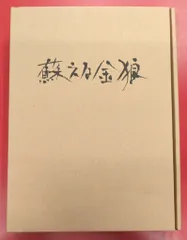 蘇える金狼